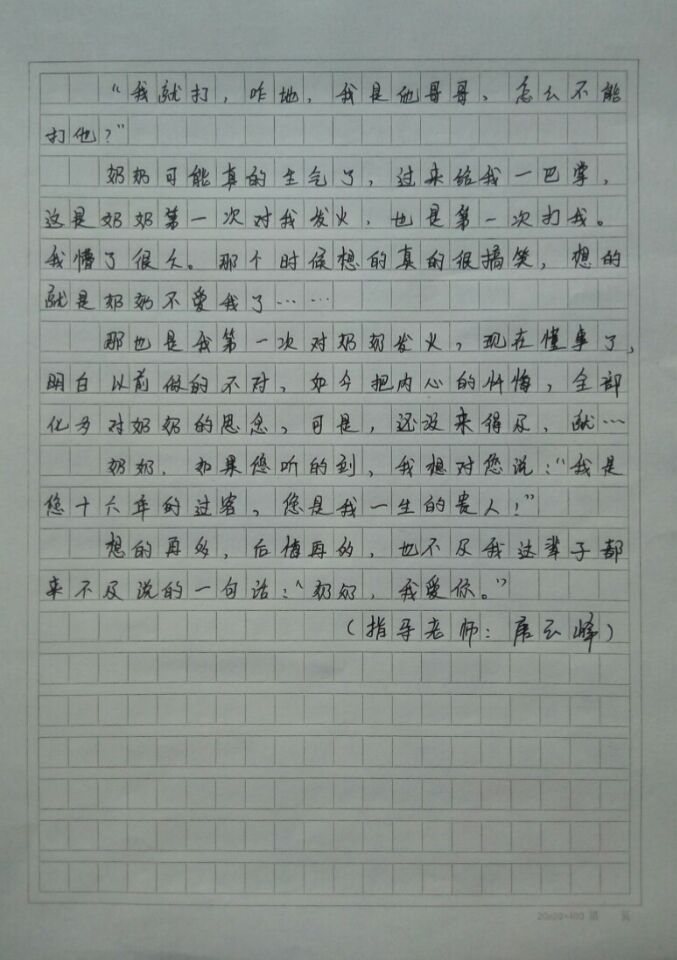 “我就打，咋地，我是他哥哥、怎么不能
打他？”
奶奶可能真的生气了，过来给我一巴掌，
这是奶奶第一次对我发火，也是第一次打我。
我懵了很久。那个时候想的真的很搞笑，想的
就是奶奶不爱我了……
那也是我第一次对奶奶发火，现在懂事了，
明白以前做的不对，如今把内心的忏悔，全部
化为对奶奶的思念，可是，还没来得及，就…
奶奶，如果您听的到，我想对您说：“我是
您十六年的过客，您是我一生的贵人！”
想的再多，后悔再的，也不及我这辈子都
来不及说的一句话：“奶奶，我爱你。”
（指导老师：席云峰）
20x20=400 第 页